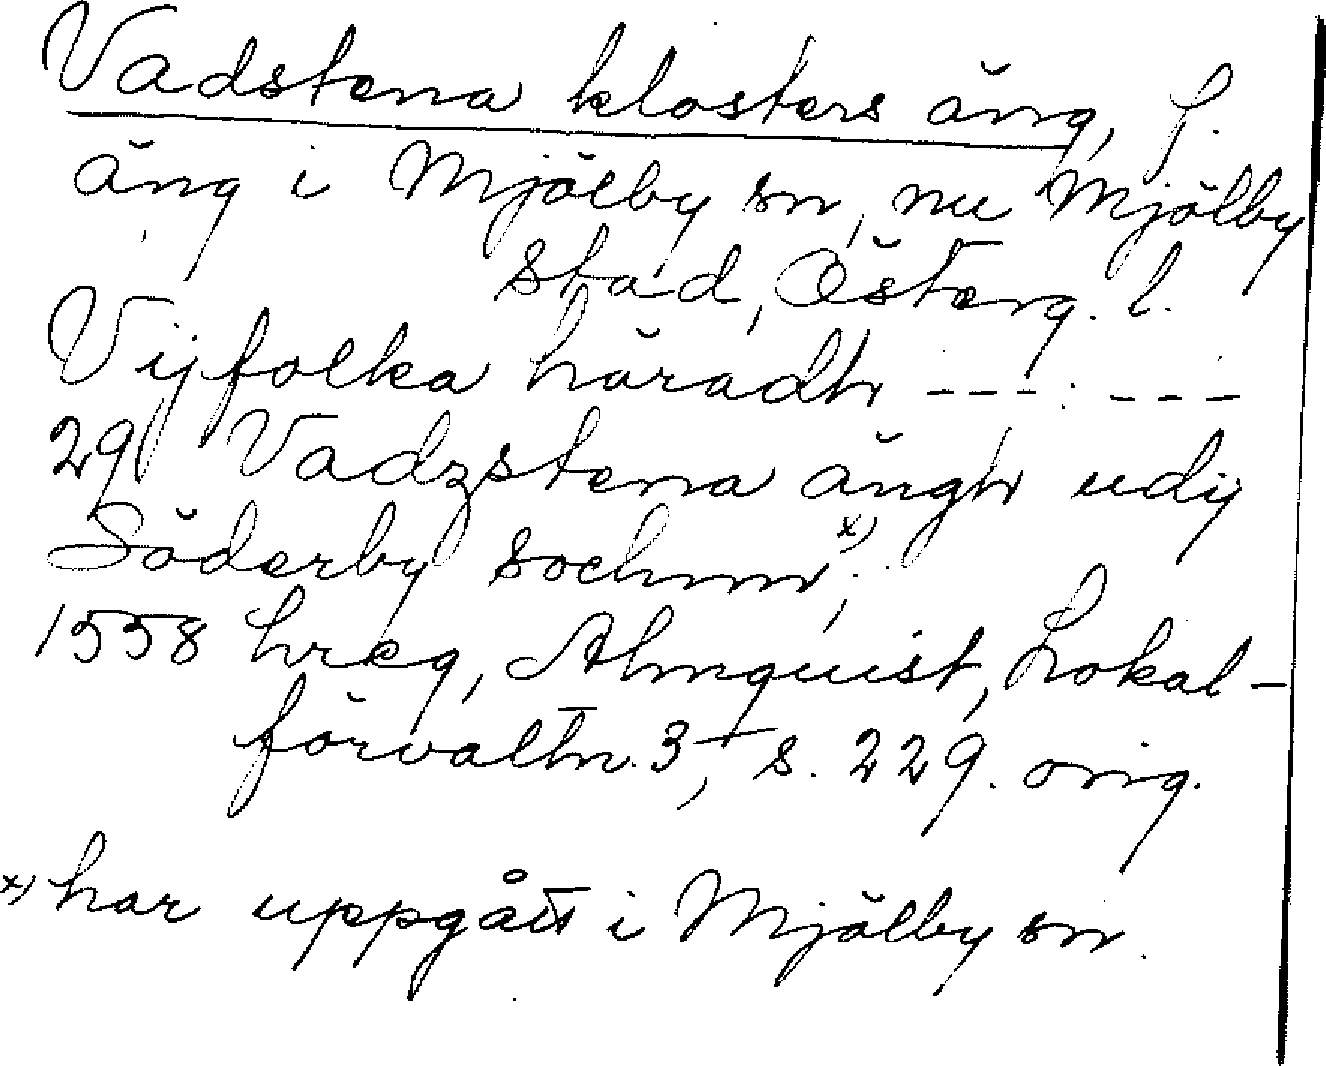 Vadstena klosters äng, f.
äng i Mjölby sn, nu Mjölby
stad, Österg. l.
Vijfolka häradh --- : ---
29 Vadzstena ängh udij
Söderby sochnn x);
1558 hreg, Almquist, Lokal-
förvaltn. 3, s. 229. orig.
x) har uppgått i Mjölby sn.